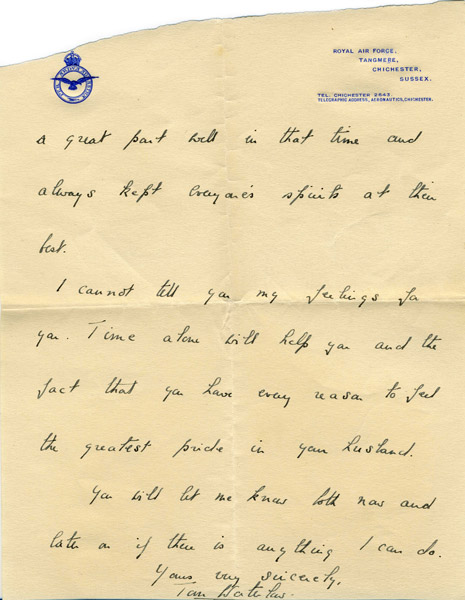 ROYAL AIR FORCE,
TANGMERE,
CHICHESTER,
SUSSEX.
TEL. CHICHESTER 2643
TELEGRAPHIC ADDRESS, AERONAUTICS, CHICHESTER.
a great part well in that time and
always kept everyone's spirits at their
best.
I cannot tell you my feelings for
you. Time alone will help you and the
fact that you have every reason to feel
the greatest pride in your husband.
You will let me know both now and
later on if there is anything I can do.
Yours very sincerely,